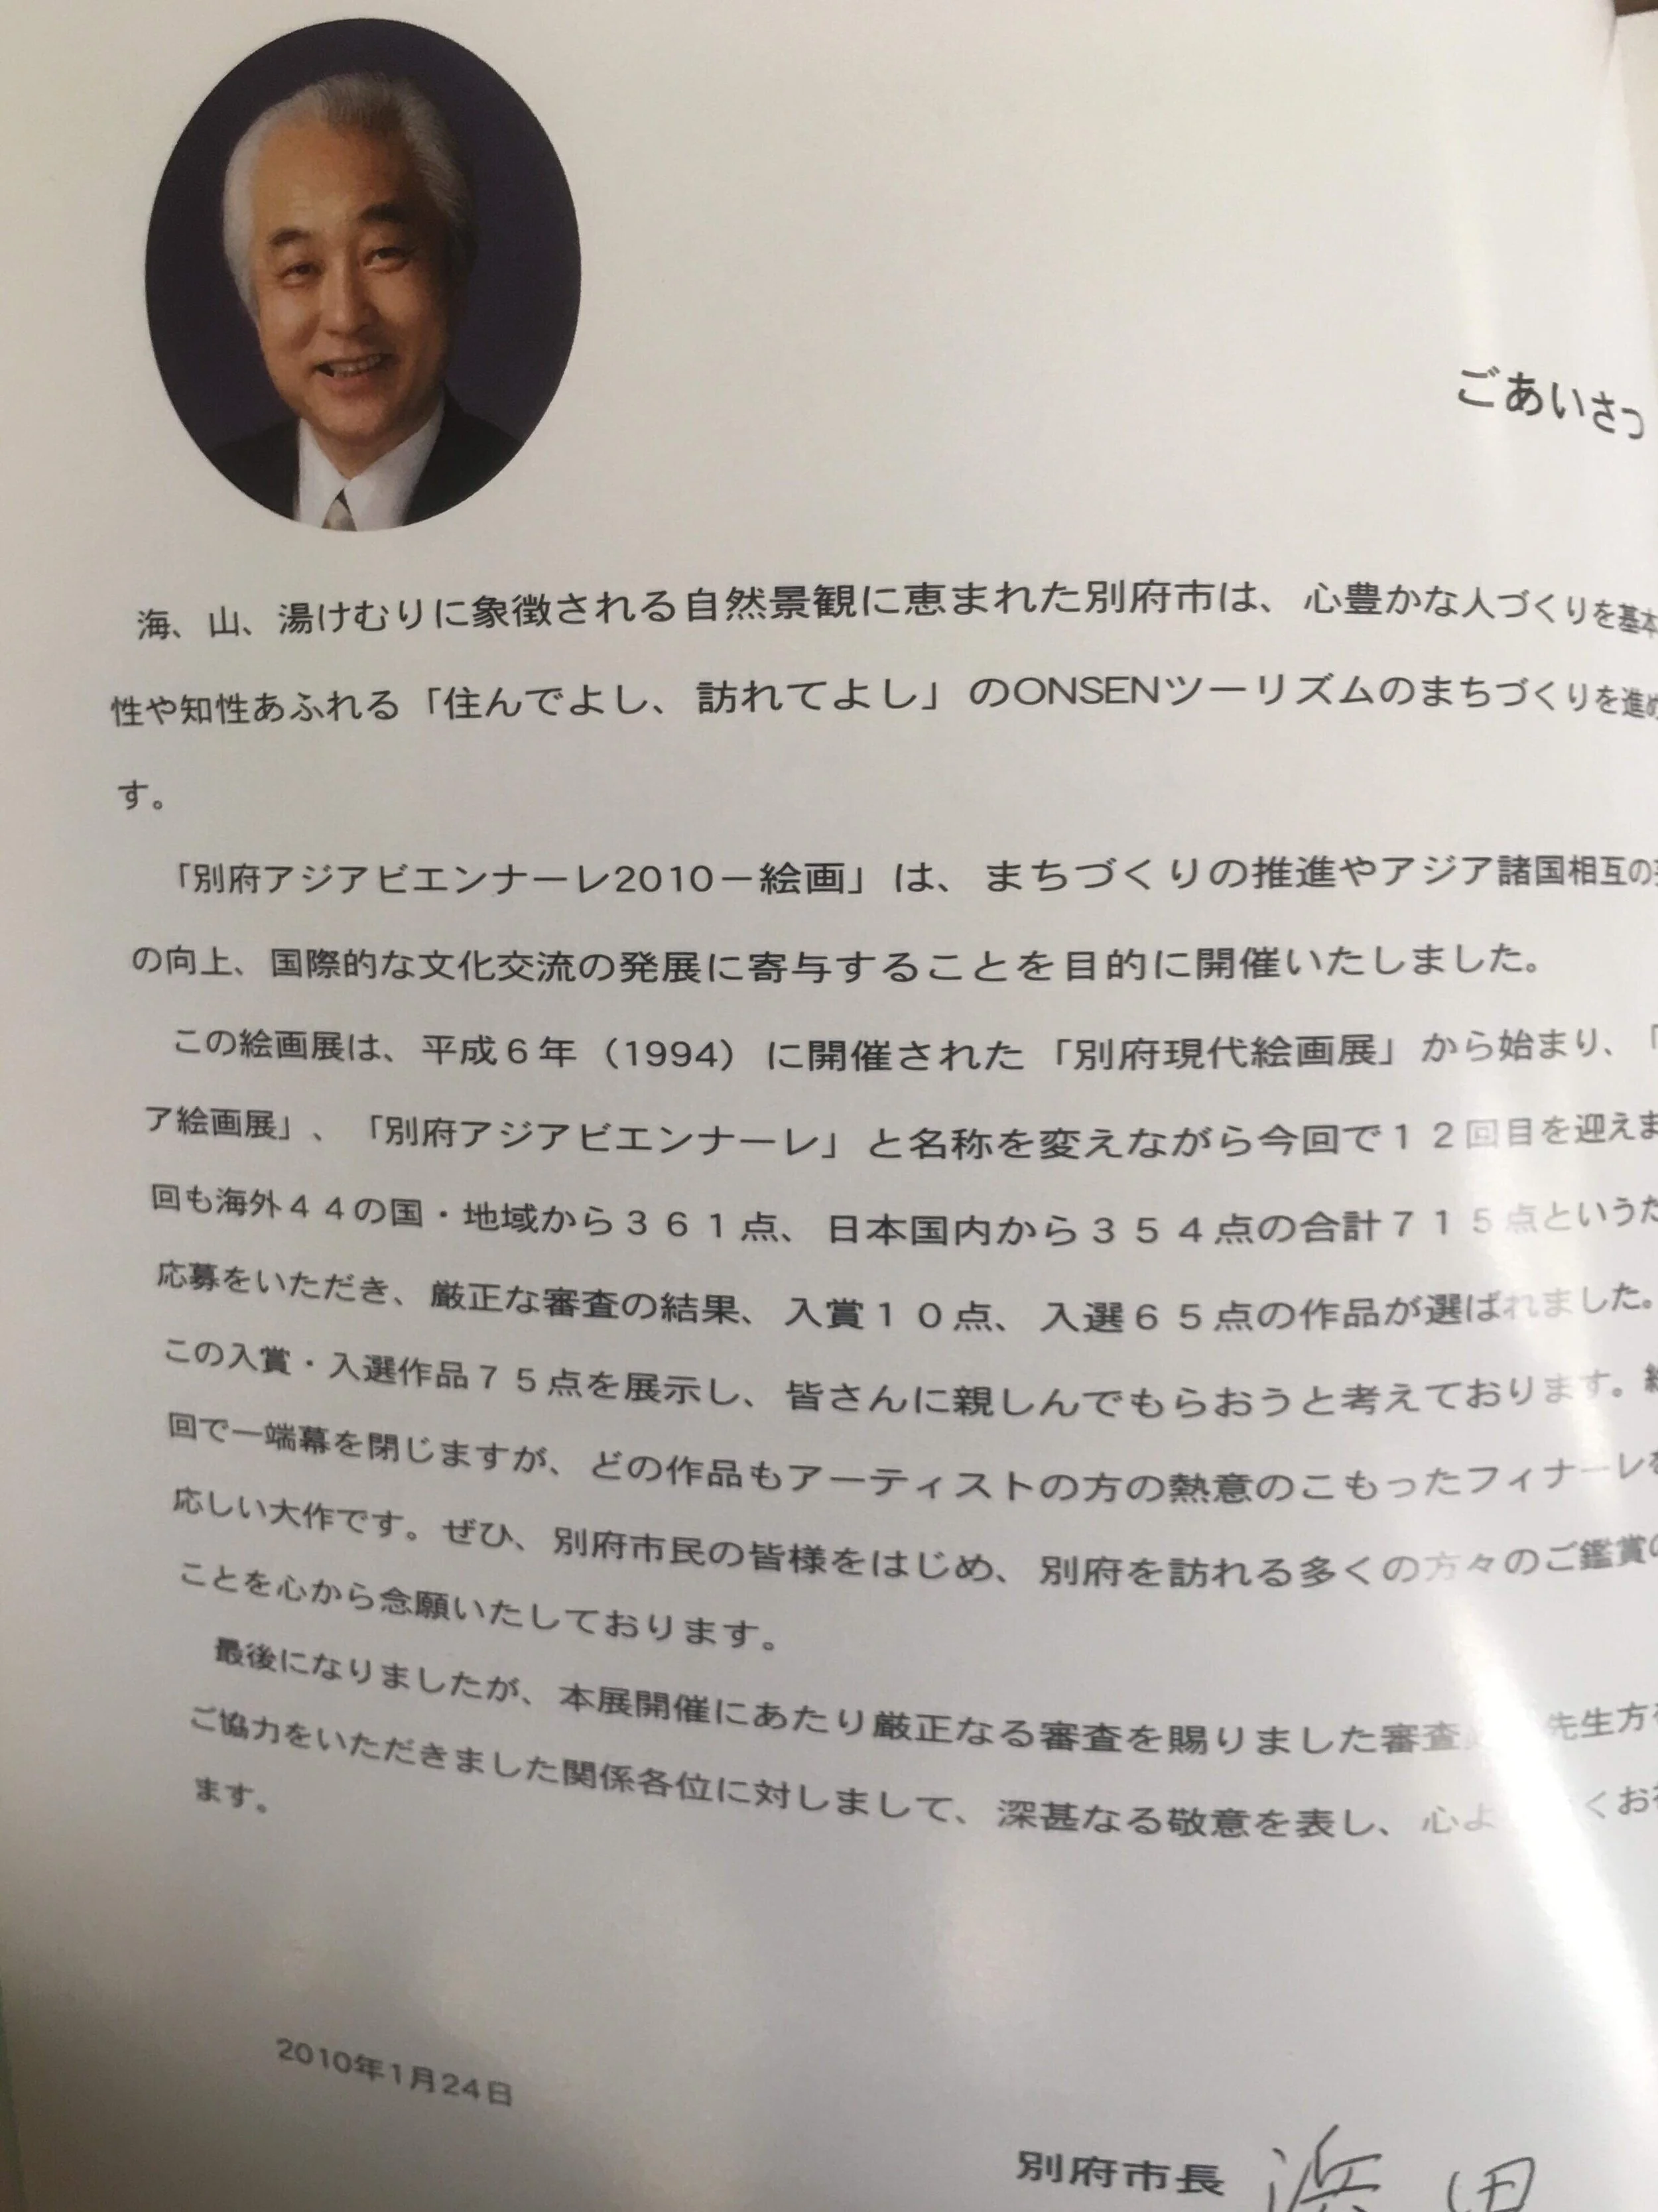 ごあいさつ
海、山、湯けむりに象徴される自然景観に恵まれた別府市は、心豊かな人づくりを基本
性や知性あふれる「住んでよし、訪れてよし」のONSENツーリズムのまちづくりを進め
す。
「別府アジアビエンナーレ2010－絵画」は、まちづくりの推進やアジア諸国相互の
の向上、国際的な文化交流の発展に寄与することを目的に開催いたしました。
この絵画展は、平成６年（1994）に開催された「別府現代絵画展」から始まり、「
ア絵画展」、「別府アジアビエンナーレ」と名称を変えながら今回で１２回目を迎えま
回も海外４４の国・地域から３６１点、日本国内から３５４点の合計７１５点というた
応募をいただき、厳正な審査の結果、入賞１０点、入選６５点の作品が選ばれました。
この入賞・入選作品７５点を展示し、皆さんに親しんでもらおうと考えております。
回で一端幕を閉じますが、どの作品もアーティストの方の熱意のこもったフィナーレを
応しい大作です。ぜひ、別府市民の皆様をはじめ、別府を訪れる多くの方々のご鑑賞の
ことを心から念願いたしております。
最後になりましたが、本展開催にあたり厳正なる審査を賜りました審査 先生方を
ご協力をいただきました関係各位に対しまして、深甚なる敬意を表し、心よ くお
ます。
2010年1月24日
別府市長 浜田